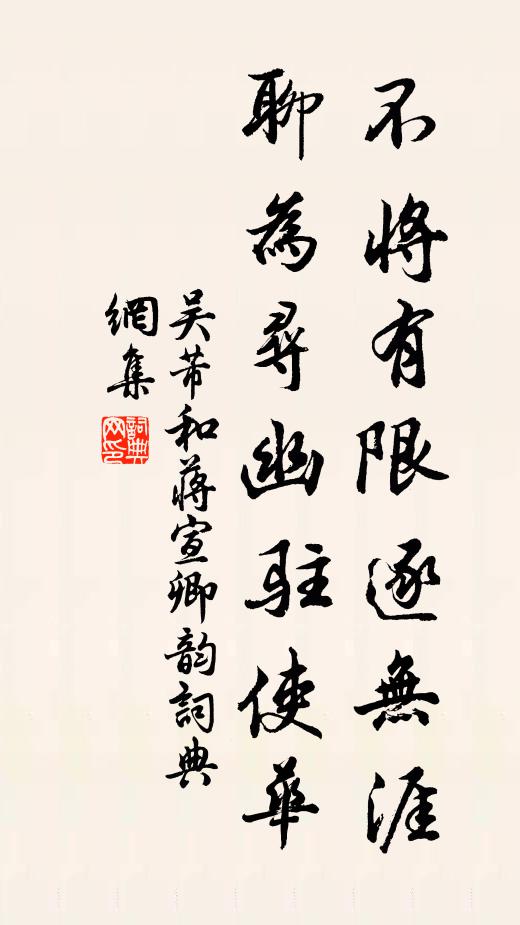 不將有限逐無涯
聊為尋幽駐使華
吴芾和蔣宣卿韵詞典
網集
詞典
网印